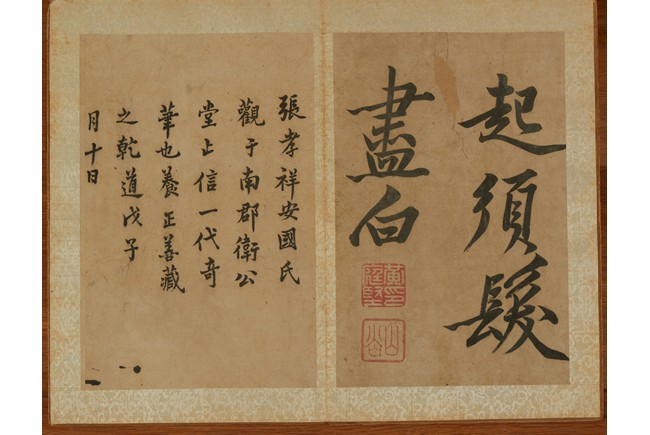 起須髮
盡白
張孝祥安國氏
觀于南郡衛公
堂上信一代奇
筆也養正善藏
之乾道戊子
月十日